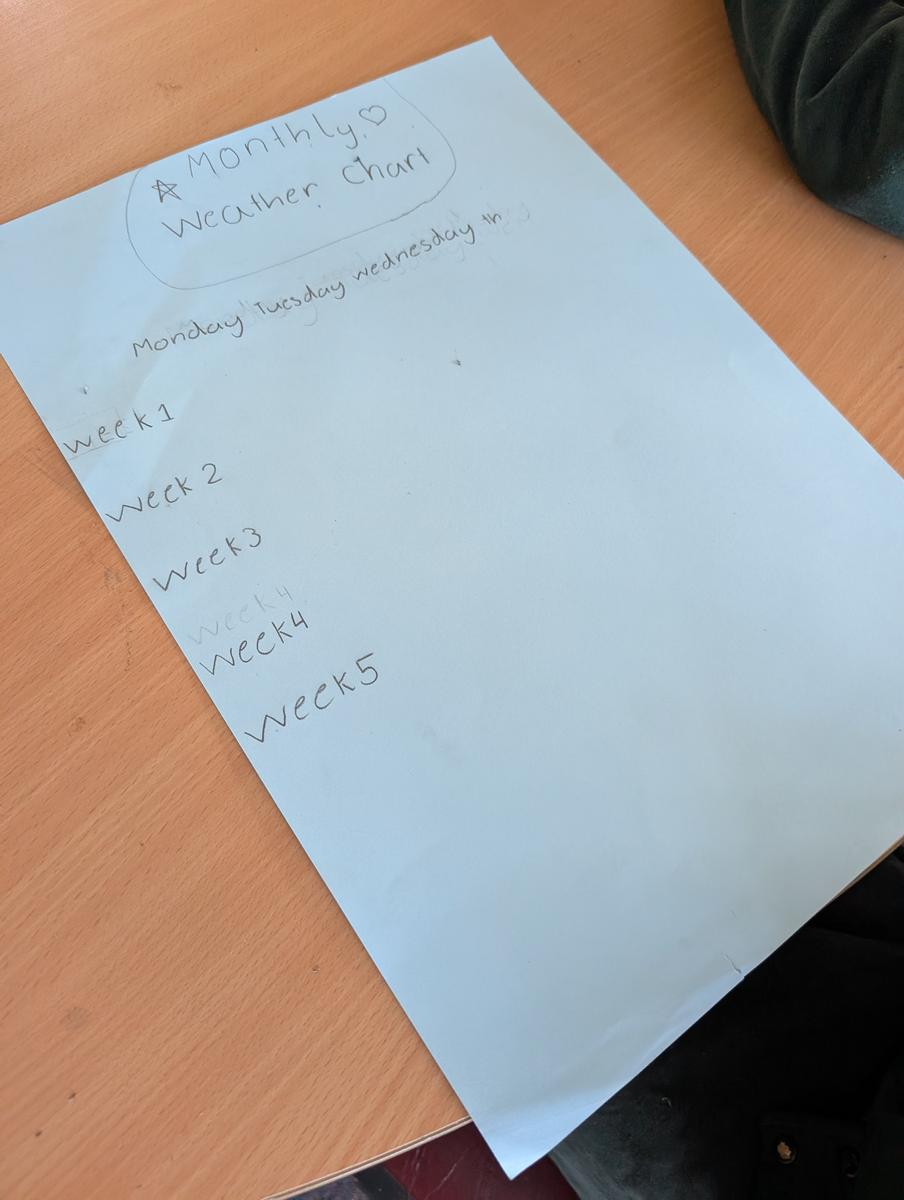 Monthly
Weather Chart
Monday Tuesday wednesday th
week 1
week 2
week 3
week 4
week 4
week 5